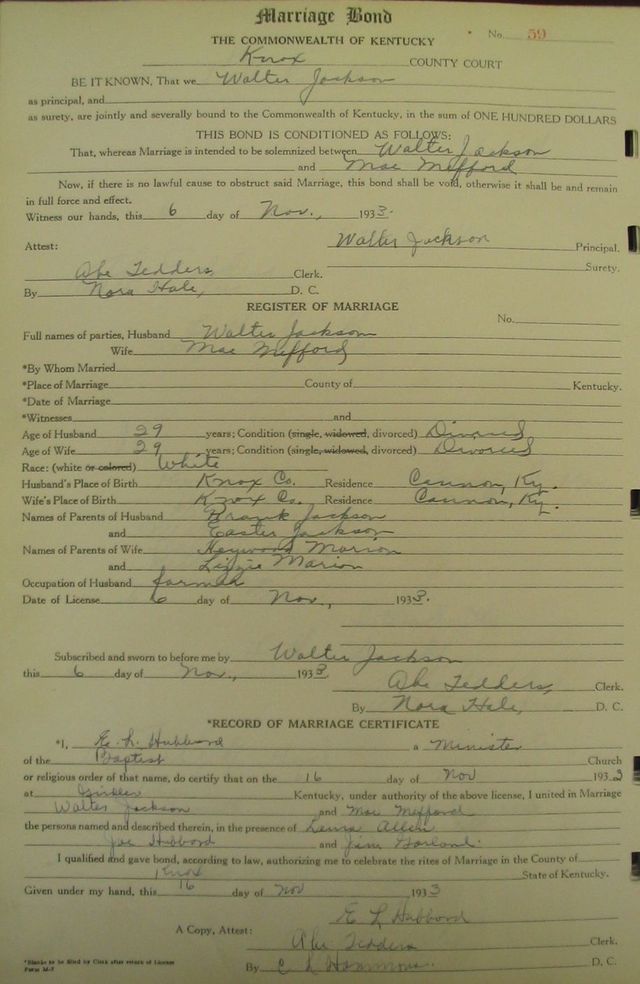 Marriage Bond
No. 59
THE COMMONWEALTH OF KENTUCKY
Knox COUNTY COURT
BE IT KNOWN, That we Walter Jackson
as principal, and
as surety, are jointly and severally bound to the Commonwealth of Kentucky, in the sum of ONE HUNDRED DOLLARS
THIS BOND IS CONDITIONED AS FOLLOWS:
That, whereas Marriage is intended to be solemnized between Walter Jackson
and Mae Mefford
Now, if there is no lawful cause to obstruct said Marriage, this bond shall be void, otherwise it shall be and remain
in full force and effect.
Witness our hands, this 6 day of Nov., 1933.
Walter Jackson Principal.
Attest:
Surety.
Abe Tedders, Clerk.
By Nora Hale, D. C.
REGISTER OF MARRIAGE
No.
Full names of parties, Husband Walter Jackson
Wife Mae Mefford
*By Whom Married
*Place of Marriage County of Kentucky.
*Date of Marriage
*Witnesses and
Age of Husband 29 years; Condition (single, widowed, divorced) Divorced
Age of Wife 29 years; Condition (single, widowed, divorced) Divorced
Race: (white or colored) White
Husband's Place of Birth Knox Co. Residence Cannon, Ky.
Wife's Place of Birth Knox Co. Residence Cannon, Ky.
Names of Parents of Husband Frank Jackson
and Easter Jackson
Names of Parents of Wife Heywood Marion
and Lizzie Marion
Occupation of Husband farmer
Date of License 6 day of Nov., 1933.
Subscribed and sworn to before me by Walter Jackson
this 6 day of Nov., 1933
Abe Tedders, Clerk.
By Nora Hale, D. C.
*RECORD OF MARRIAGE CERTIFICATE
*I, E. L. Hubbard a Minister
of the Baptist Church
or religious order of that name, do certify that on the 16 day of Nov 1933
at Girdler Kentucky, under authority of the above license, I united in Marriage
Walter Jackson and Mae Mefford
the persons named and described therein, in the presence of Laura Allen
Joe Hubbard and Jim Garland.
I qualified and gave bond, according to law, authorizing me to celebrate the rites of Marriage in the County of
Knox State of Kentucky.
Given under my hand, this 16 day of Nov 1933
E L Hubbard
A Copy, Attest:
Abe Tedders Clerk.
By C L Hammons. D. C.
*Blanks to be filled by Clerk after return of License
Form M-3